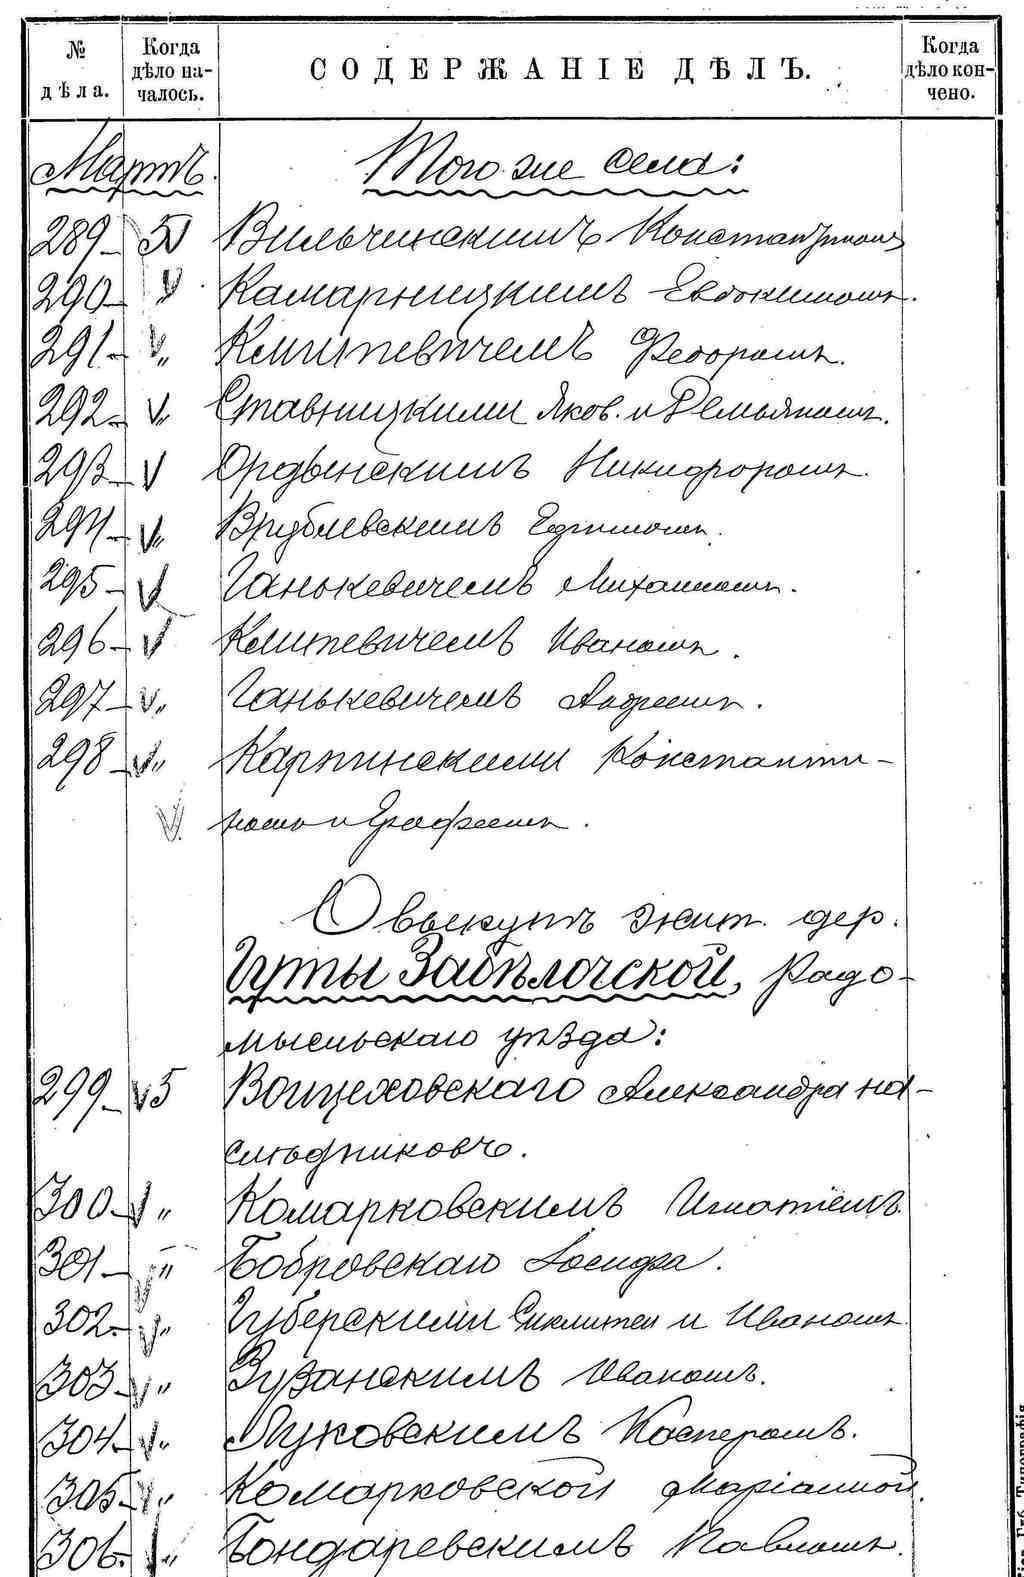 № дѣла.
Когда дѣло началось.
СОДЕРЖАНІЕ ДѢЛЪ.
Когда дѣло кончено.
Мартъ. Того же села:
289 - 5 Вильчинскимъ Константиномъ
290 - " Камарницкимъ Евдокимомъ.
291 - " Кмитевичемъ Федоромъ.
292 - " Ставницкими Яков. и Демьяномъ.
293 - Ордынскимъ Никифоромъ.
294 - " Врублевскимъ
295 - Ганькевичемъ Михаиломъ.
296 - Кмитевичемъ Иваномъ.
297 - " Ганькевичемъ Андреемъ.
298 - " Карпинскими Константи-
номъ и Ерофеемъ.
О выкупѣ жит. дер.
Гуты Забѣлочской, Радо-
мысльскаго уѣзда:
299 - 5 Войцеховскаго Александра на-
слѣдниковъ.
300 - " Комарковскимъ Игнатіемъ.
301 - " Бобровскаго Іосифа.
302 - " Губерскими и Иваномъ
303 - " Иваномъ.
304 - " Луковскимъ Касперомъ.
305 - " Комарковской Маріанной.
306. " Бондаревскимъ Павломъ.
Типографія